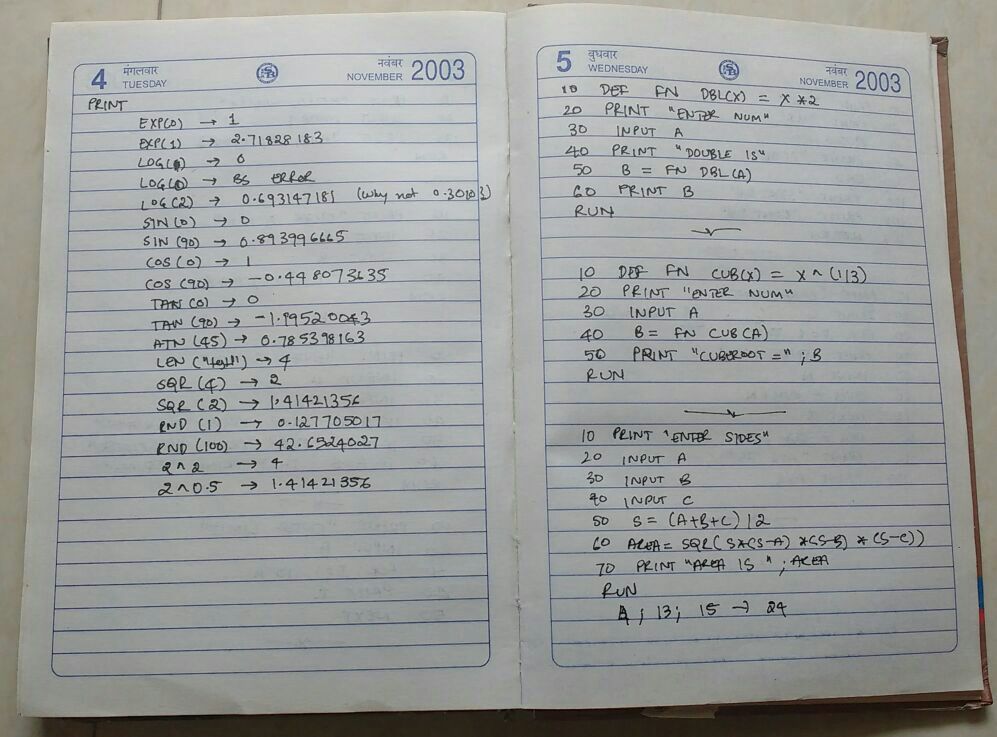 4 मंगलवार TUESDAY नवंबर NOVEMBER 2003
PRINT
EXP(0) → 1
EXP(1) → 2.71828183
LOG(1) → 0
LOG(0) → BS ERROR
LOG(2) → 0.693147181 (Why not 0.30103)
SIN(0) → 0
SIN(90) → 0.893996665
COS(0) → 1
COS(90) → -0.448073635
TAN(0) → 0
TAN(90) → -1.99520043
ATN(45) → 0.785398163
LEN("test") → 4
SQR(4) → 2
SQR(2) → 1.41421356
RND(1) → 0.127705017
RND(100) → 42.6524027
2^2 → 4
2^0.5 → 1.41421356
5 बुधवार WEDNESDAY नवंबर NOVEMBER 2003
10 DEF FN DBL(X) = X**2
20 PRINT "ENTER NUM"
30 INPUT A
40 PRINT "DOUBLE IS"
50 B = FN DBL(A)
60 PRINT B
RUN
10 DEF FN CUB(X) = X^(1/3)
20 PRINT "ENTER NUM"
30 INPUT A
40 B = FN CUB(A)
50 PRINT "CUBEROOT =" ; B
RUN
10 PRINT "ENTER SIDES"
20 INPUT A
30 INPUT B
40 INPUT C
50 S = (A+B+C)/2
60 AREA = SQR(S*(S-A)*(S-B)*(S-C))
70 PRINT "AREA IS " ; AREA
RUN
4 ; 13 ; 15 → 24